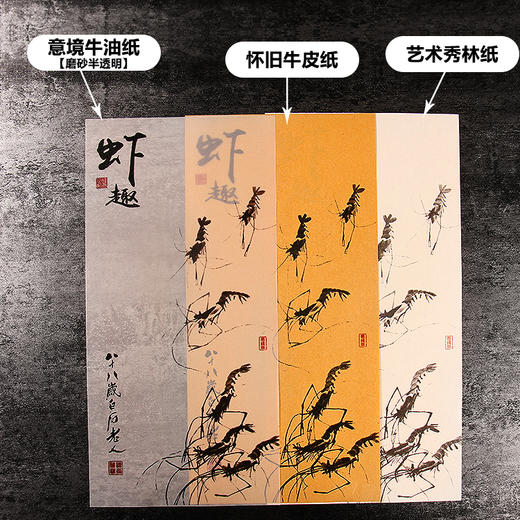 意境牛油纸
【磨砂半透明】
怀旧牛皮纸
艺术秀林纸
虾趣
虾趣
八十八岁白石老人
八十八岁